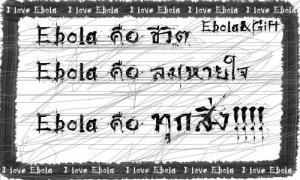 I love Ebola I love Ebola I love Ebola I love Ebola I love Ebola
Ebola&Gift
Ebola คือ ชีวิต
Ebola คือ ลมหายใจ
Ebola คือ ทุกสิ่ง!!!!
I love Ebola I love Ebola I love Ebola I love Ebola I love Ebola